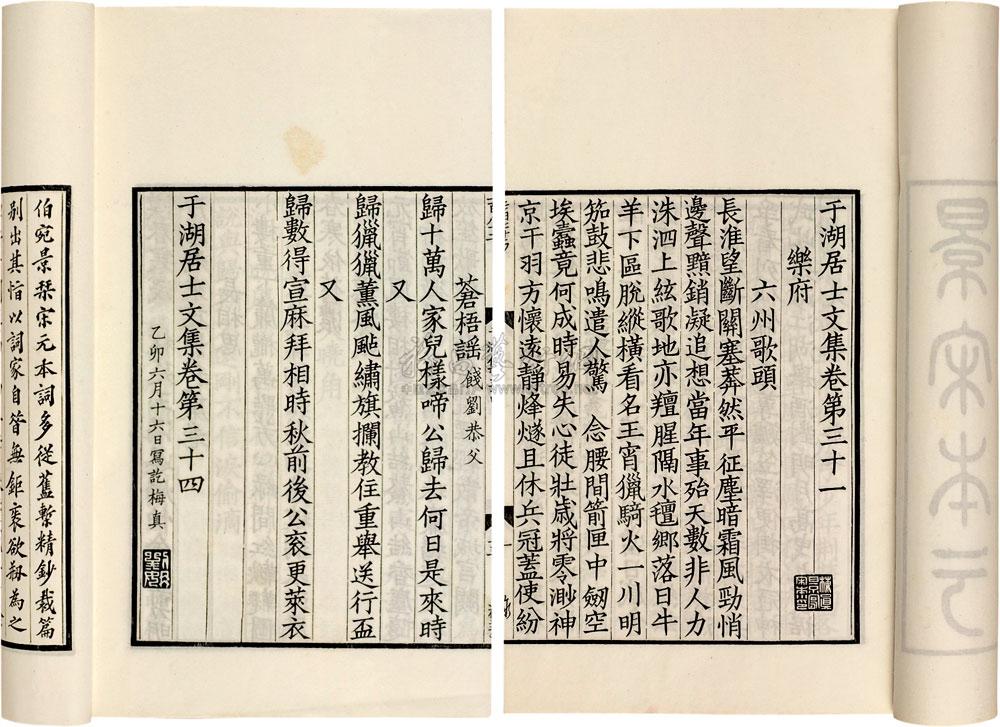 于湖居士文集卷第三十一
樂府
六州歌頭
長淮望斷關塞莽然平征塵暗霜風勁悄
邊聲黯銷凝追想當年事殆天數非人力
洙泗上絃歌地亦羶腥隔水氊鄉落日牛
羊下區脫縱橫看名王宵獵騎火一川明
笳鼓悲鳴遣人驚 念腰間箭匣中劒空
埃蠹竟何成時易失心徒壯歲將零渺神
京干羽方懷遠靜烽燧且休兵冠蓋使紛
蒼梧謠 餞劉恭父
歸十萬人家兒樣啼公歸去何日是來時
又
歸獵獵薰風颭繡旗攔教住重舉送行盃
又
歸數得宣麻拜相時秋前後公衮更萊衣
于湖居士文集卷第三十四
乙卯六月十六日冩訖梅真
伯宛景栞宋元本詞多從舊槧精鈔裁篇
别出其恉以詞家自昔無鉅裒欲剏為之
景宋本元